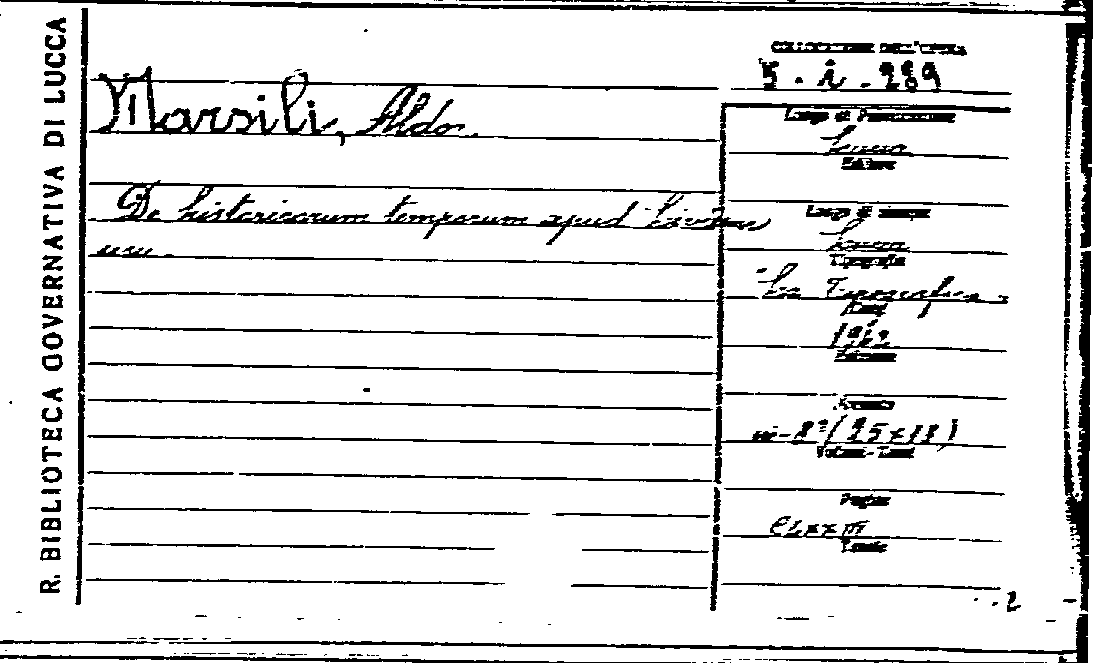 R. BIBLIOTECA GOVERNATIVA DI LUCCA
COLLOCAZIONE DELL'OPERA
5 - i - 289
Marsili, Aldo.
Luogo di Pubblicazione
Lucca
Editore
De historicorum temporum apud Livium
usu.
Luogo di stampa
Lucca
Tipografia
"La Tipografica"
Anno
1962
Edizione
Formato
in-8°(25x18)
Volumi-Tomi
Pagine
CLXXIII
Tavole